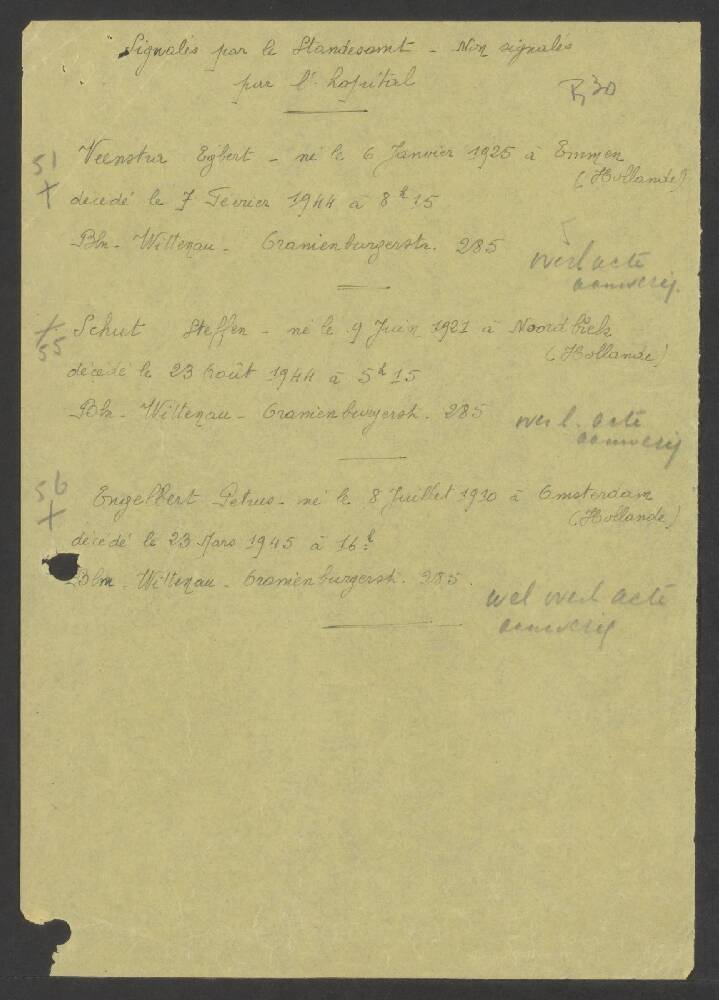 Signalés par le Standesamt - Non signalés
par l'hopital
51 Veenstra Egbert - né le 6 Janvier 1925 à Emmen
(Hollande)
décédé le 7 Fevrier 1944 à 8h 15
Bln - Wittenau - Oranienburgerstr. 285
overl acte
aanwezig.
55 Schut Steffen - né le 9 Juin 1921 à
(Hollande)
décédé le 23 Août 1944 à 5h 15
Bln - Wittenau - Oranienburgerstr. 285
overl. acte
aanwezig
56 Engelbert Petrus - né le 8 Juillet 1910 à Amsterdam
(Hollande)
décédé le 23 Mars 1945 à 16h
Bln - Wittenau - Oranienburgerstr. 285.
wel overl acte
aanwezig